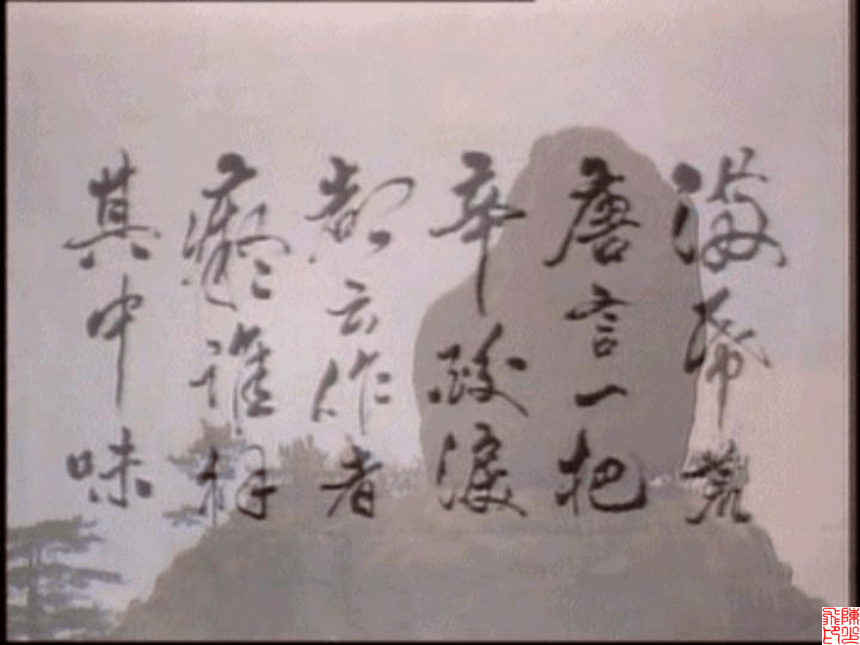 满帋荒
唐言一把
辛酸淚
都云作者
癡谁解
其中味